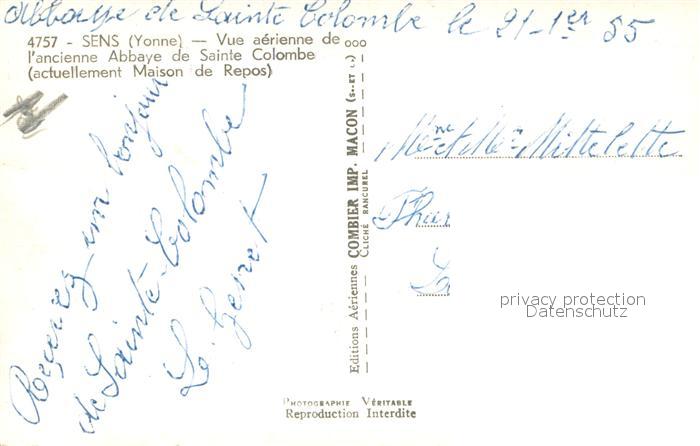 Abbaye de Sainte Colombe le 21-1er 55
4757 - SENS (Yonne) — Vue aérienne de
l'ancienne Abbaye de Sainte Colombe
(actuellement Maison de Repos)
Recevez un bonjour
de Sainte-Colombe
Editions Aériennes COMBIER IMP. MACON (S.-ET-L.)
CLICHÉ RANCUREL
Mittelette
privacy protection
Datenschutz
PHOTOGRAPHIE VÉRITABLE
Reproduction Interdite